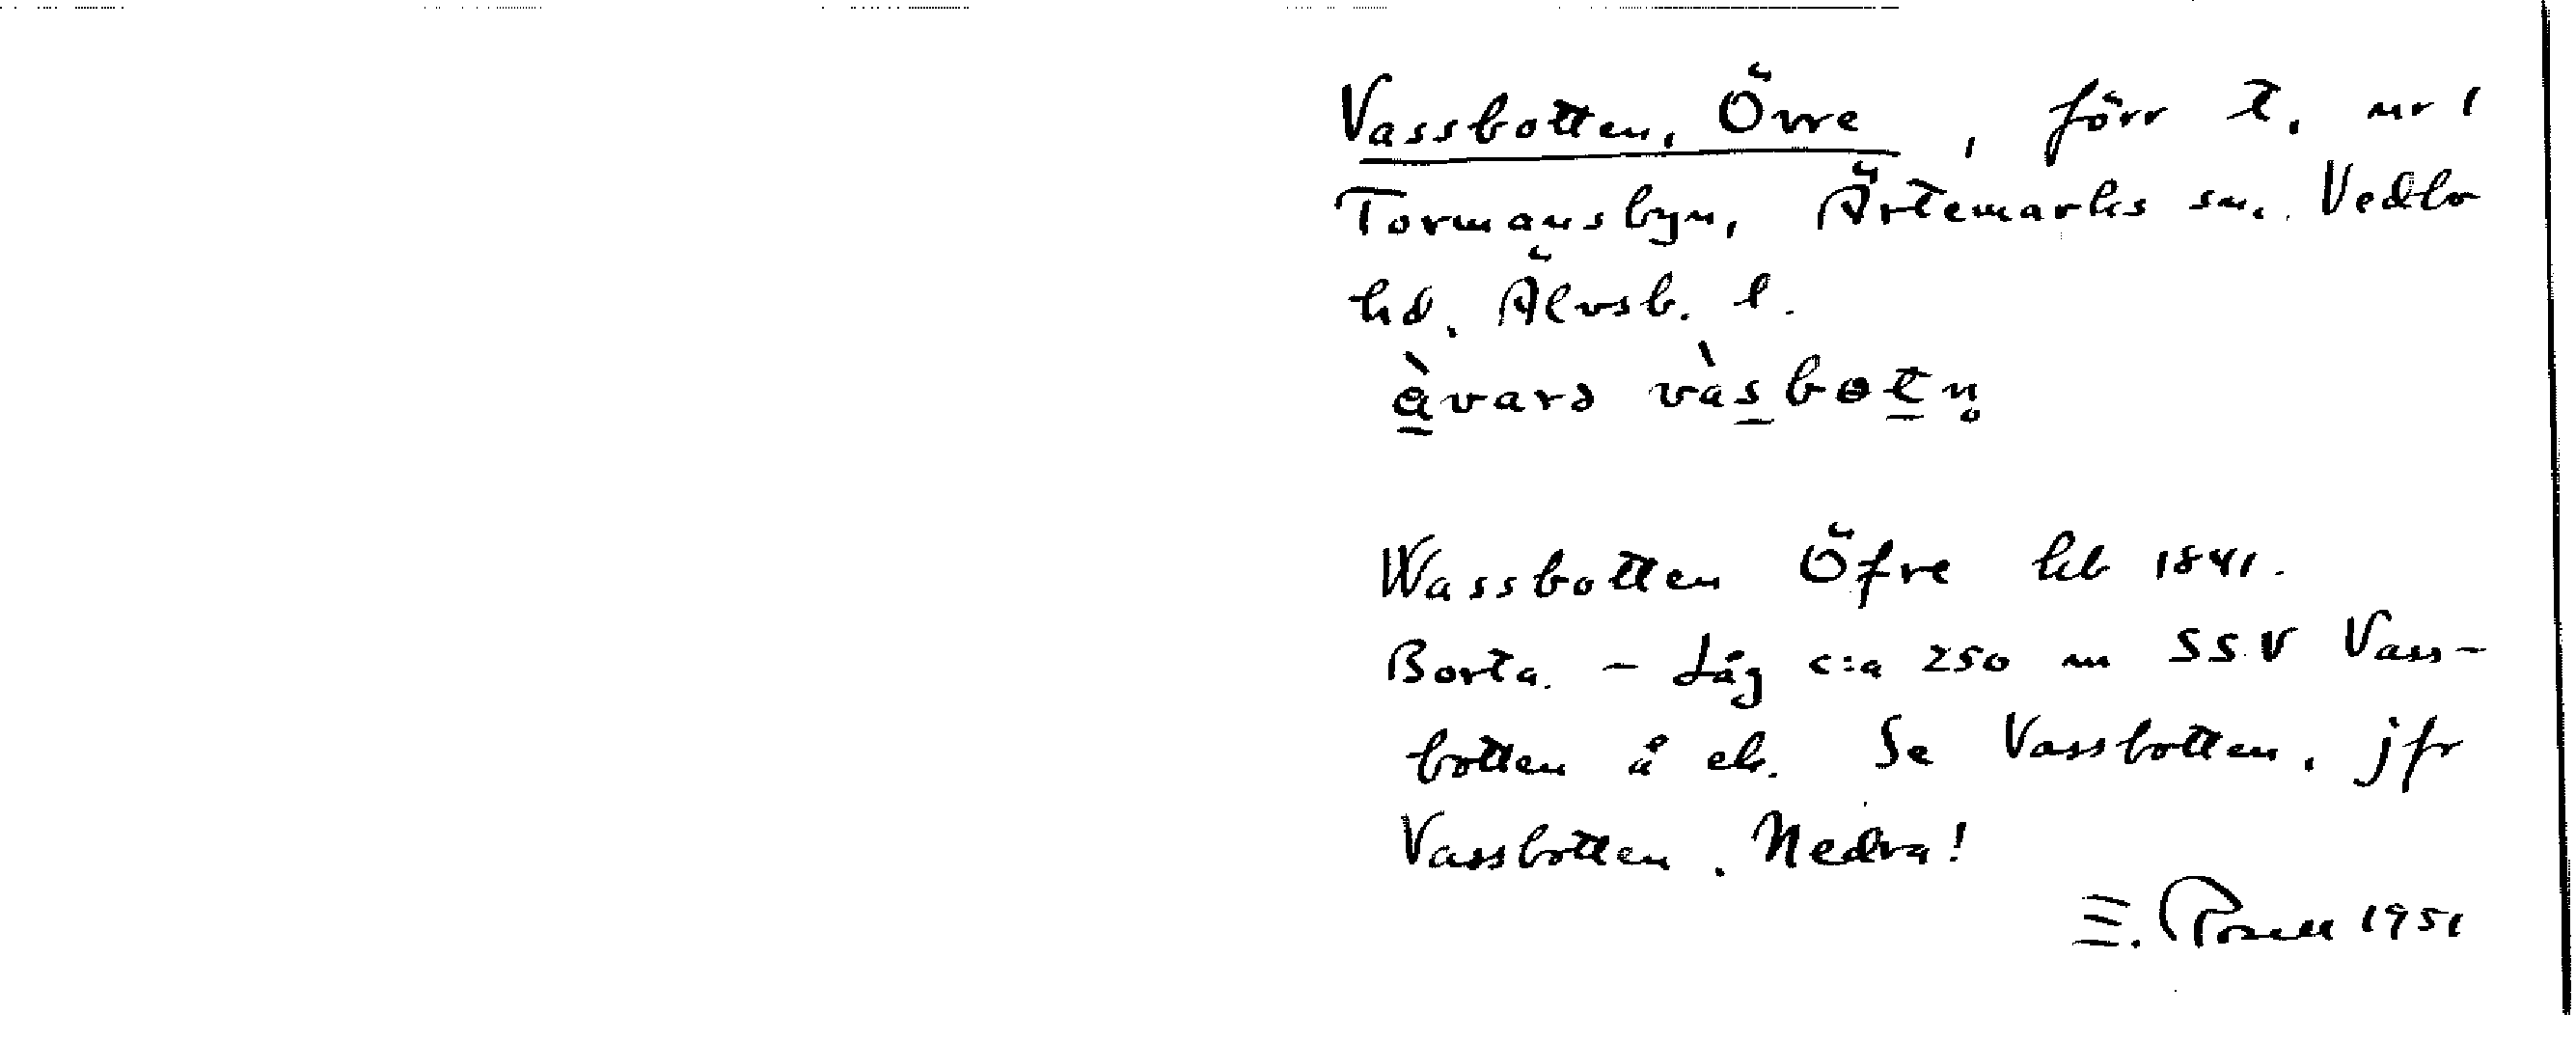 Vassbotten, Övre, förr t. nr 1
Tormansbyn, Ärtemarks sn. Vedbo
hd. Älvsb. l.
àvarə vàsbotn̥
Wassbotten Öfre hb 1841.
Borta. – Låg c:a 250 m SSV Vass-
botten å ek. Se Vassbotten, jfr
Vassbotten, Nedra!
E. Rosell 1951